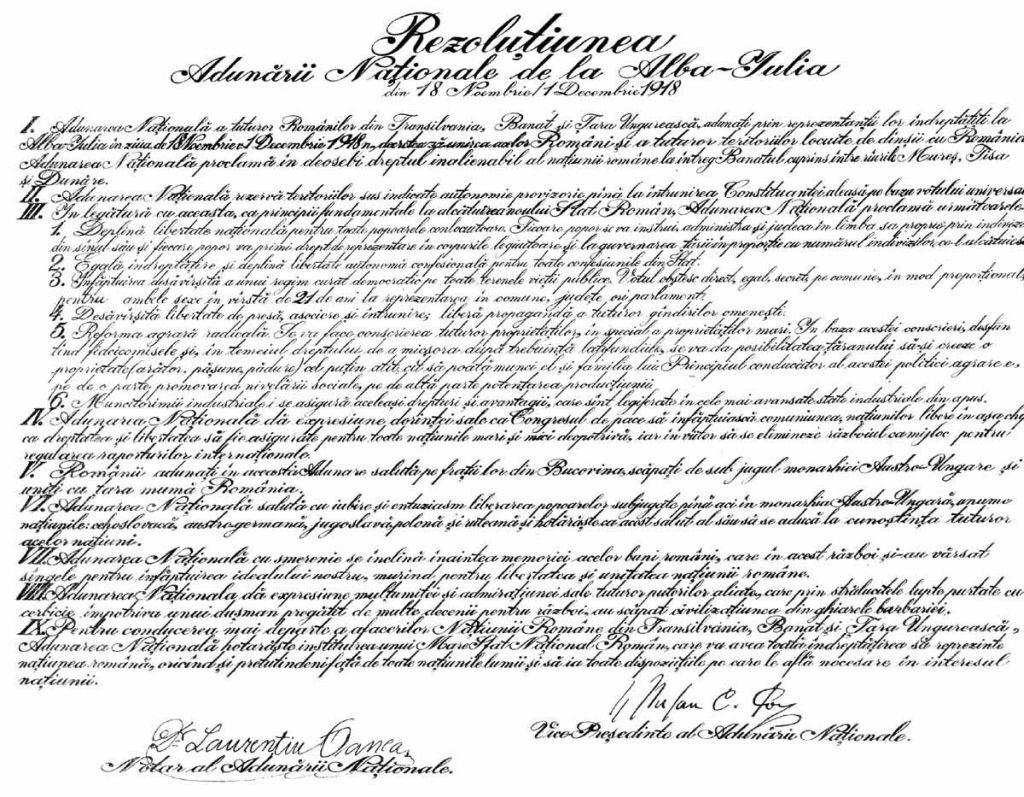 Rezoluțiunea
Adunării Naționale de la Alba-Iulia
din 18 Noembrie/1 Decembrie 1918
I. Adunarea Națională a tuturor Românilor din Transilvania, Banat și Țara Ungurească, adunați prin reprezentanții lor îndreptățiți la
Alba-Iulia în ziua de 18 Noembrie/1 Decembrie 1918, decretează unirea acelor Români și a tuturor teritoriilor locuite de dînșii cu România.
Adunarea Națională proclamă în deosebi dreptul inalienabil al națiunii române la întreg Banatul cuprins între rîurile Mureș, Tisa
și Dunăre.
II. Adunarea Națională rezervă teritoriilor sus indicate autonomie provizorie pînă la întrunirea Constituantei aleasă pe baza votului universa
III. În legătură cu aceasta, ca principii fundamentale la alcătuirea noului Stat Român, Adunarea Națională proclamă următoarele
1. Deplină libertate națională pentru toate popoarele conlocuitoare. Fiecare popor se va instrui, administra și judeca în limba sa proprie prin indivizi
din sînul său și fiecare popor va primi drept de reprezentare în corpurile legiuitoare și la guvernarea țării în proporție cu numărul indivizilor ce-l alcătuiesc
2. Egală îndreptățire și deplină libertate autonomă confesională pentru toate confesiunile din Stat.
3. Înfăptuirea desăvîrșită a unui regim curat democratic pe toate terenele vieții publice. Votul obștesc direct, egal, secret, pe comune, în mod proporțional,
pentru ambele sexe în vîrstă de 21 de ani la reprezentarea în comune, județe ori parlament.
4. Desăvîrșită libertate de presă, asociere și întrunire; liberă propagandă a tuturor gîndirilor omenești.
5. Reforma agrară radicală. Se va face conscrierea tuturor proprietăților, în special a proprietăților mari. În baza acestei conscrieri, desfiin
țînd fideicomisele și, în temeiul dreptului de a micșora după trebuință latifundiile, se va da posibilitatea țăranului să-și creeze o
proprietate (arător, pășune, pădure) cel puțin atît cît să poată munci el și familia lui. Principiul conducător al acestei politici agrare e,
pe de o parte promovarea nivelării sociale, pe de altă parte potențarea producțiunii
6. Muncitorimii industriale i se asigură aceleași drepturi și avantagii, care sînt legiferate în cele mai avansate state industriale din apus.
IV. Adunarea Națională dă expresiune dorinței sale ca Congresul de pace să înfăptuiască comuniunea națiunilor libere în așa chip
ca dreptatea și libertatea să fie asigurate pentru toate națiunile mari și mici deopotrivă, iar în viitor să se elimineze războiul ca mijloc pentru
regularea raporturilor internaționale.
V. Românii adunați în aceastá Adunare salută pe frații lor din Bucovina, scăpați de sub jugul monarhiei Austro-Ungare și
uniți cu țara mumă România.
VI. Adunarea Națională salută cu iubire și entuziasm liberarea popoarelor subjugate pînă aci în monarhia Austro-Ungară, anume
națiunile: cehoslovacă, austro-germană, jugoslavă, polonă și ruteană și hotărăște ca acest salut al său să se aducă la cunoștința tuturor
acelor națiuni.
VII. Adunarea Națională cu smerenie se închină înaintea memoriei acelor buni români, care în acest război și-au vărsat
sîngele pentru înfăptuirea idealului nostru, murind pentru libertatea și unitatea națiunii române.
VIII. Adunarea Națională dă expresiune mulțumitei și admirațiunei sale tuturor puterilor aliate, care prin strălucitele lupte purtate cu
cerbicie împotriva unui dușman pregătit de multe decenii pentru război, au scăpat civilizațiunea din ghiarele barbariei.
IX. Pentru conducerea mai departe a afacerilor Națiunii Române din Transilvánia, Banat și Țara Ungurească,
Adunarea Națională hotărăște instituirea unui Mare Sfat Național Român, care va avea toată îndreptățirea să reprezinte
națiunea română, oricînd și pretutindeni față de toate națiunile lumii și să ia toate dispozițiile pe care le află necesare în interesul
națiunii.
Ștefan C. Pop
Vice Președinte al Adunării Naționale.
Dr. Laurențiu Oanea,
Notar al Adunării Naționale.